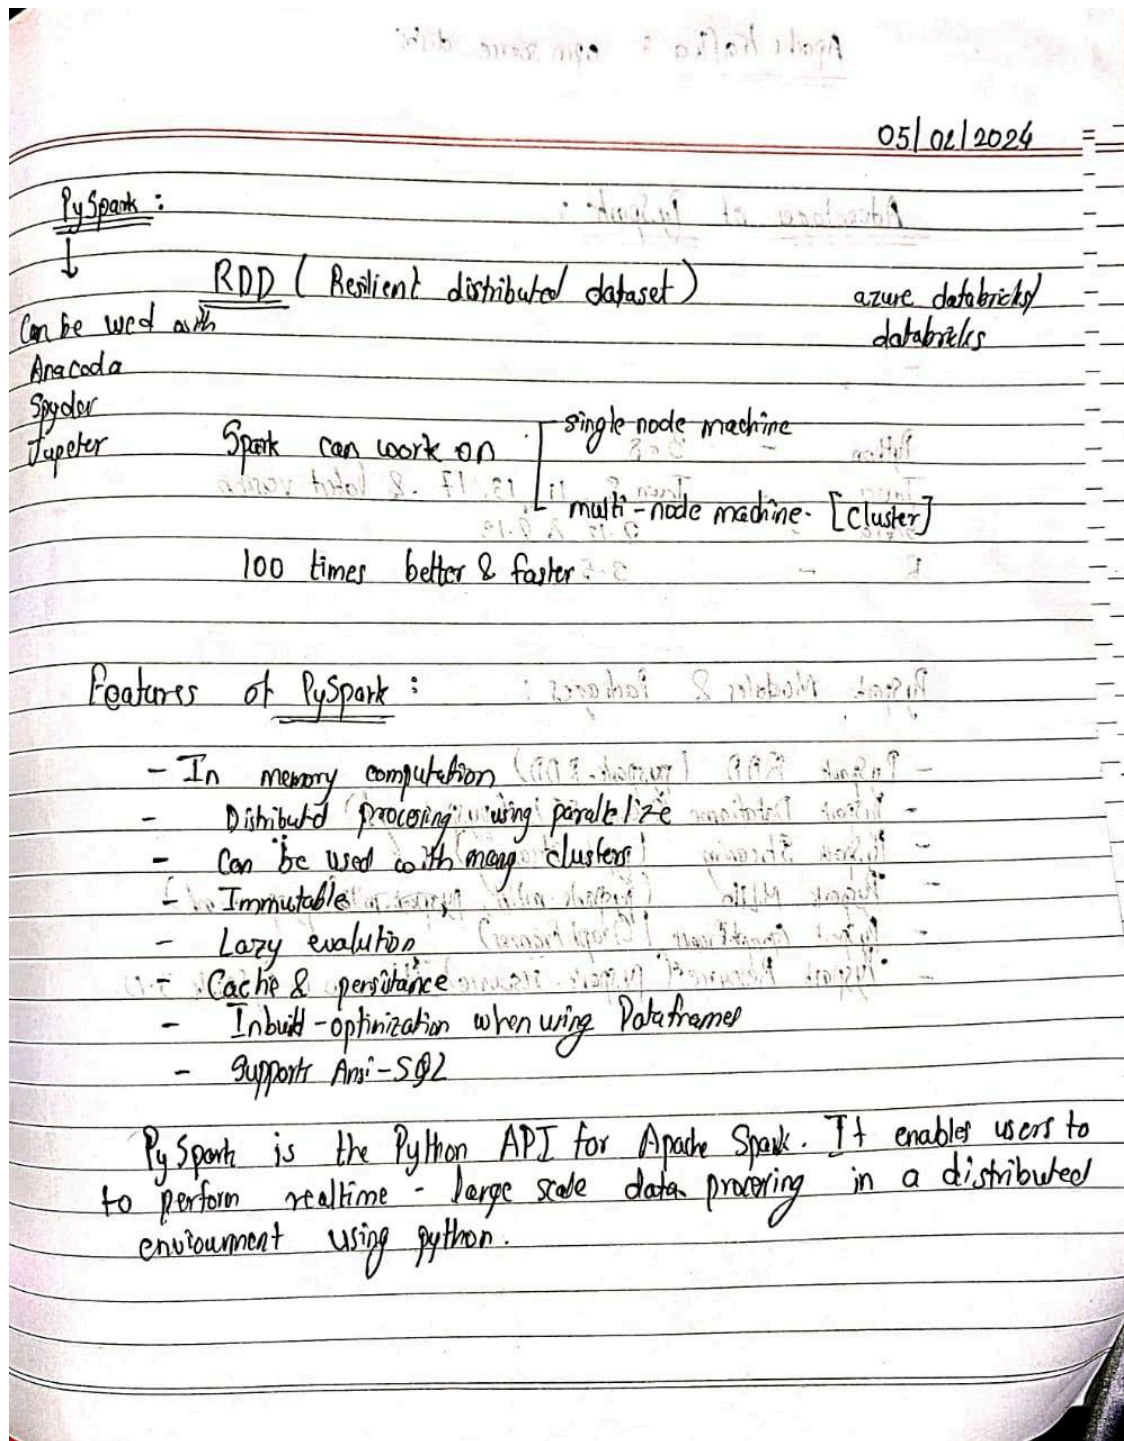 05/02/2024
PySpark :
RDD ( Resilient distributed dataset )
azure databricks/
databricks
Can be used with
Anacoda
Spyder
Jupeter
Spark can work on
single node machine
multi-node machine. [cluster]
100 times better & faster
Features of PySpark :
- In memory computation
- Distributed processing using parallelize
- Can be used with many clusters
- Immutable
- Lazy evalution
- Cache & persistance
- Inbuild-optinization when using Dataframes
- Supports Ansi-SQL
PySpark is the Python API for Apache Spark. It enables users to
to perform realtime - large scale data processing in a distributed
enviournment using python.